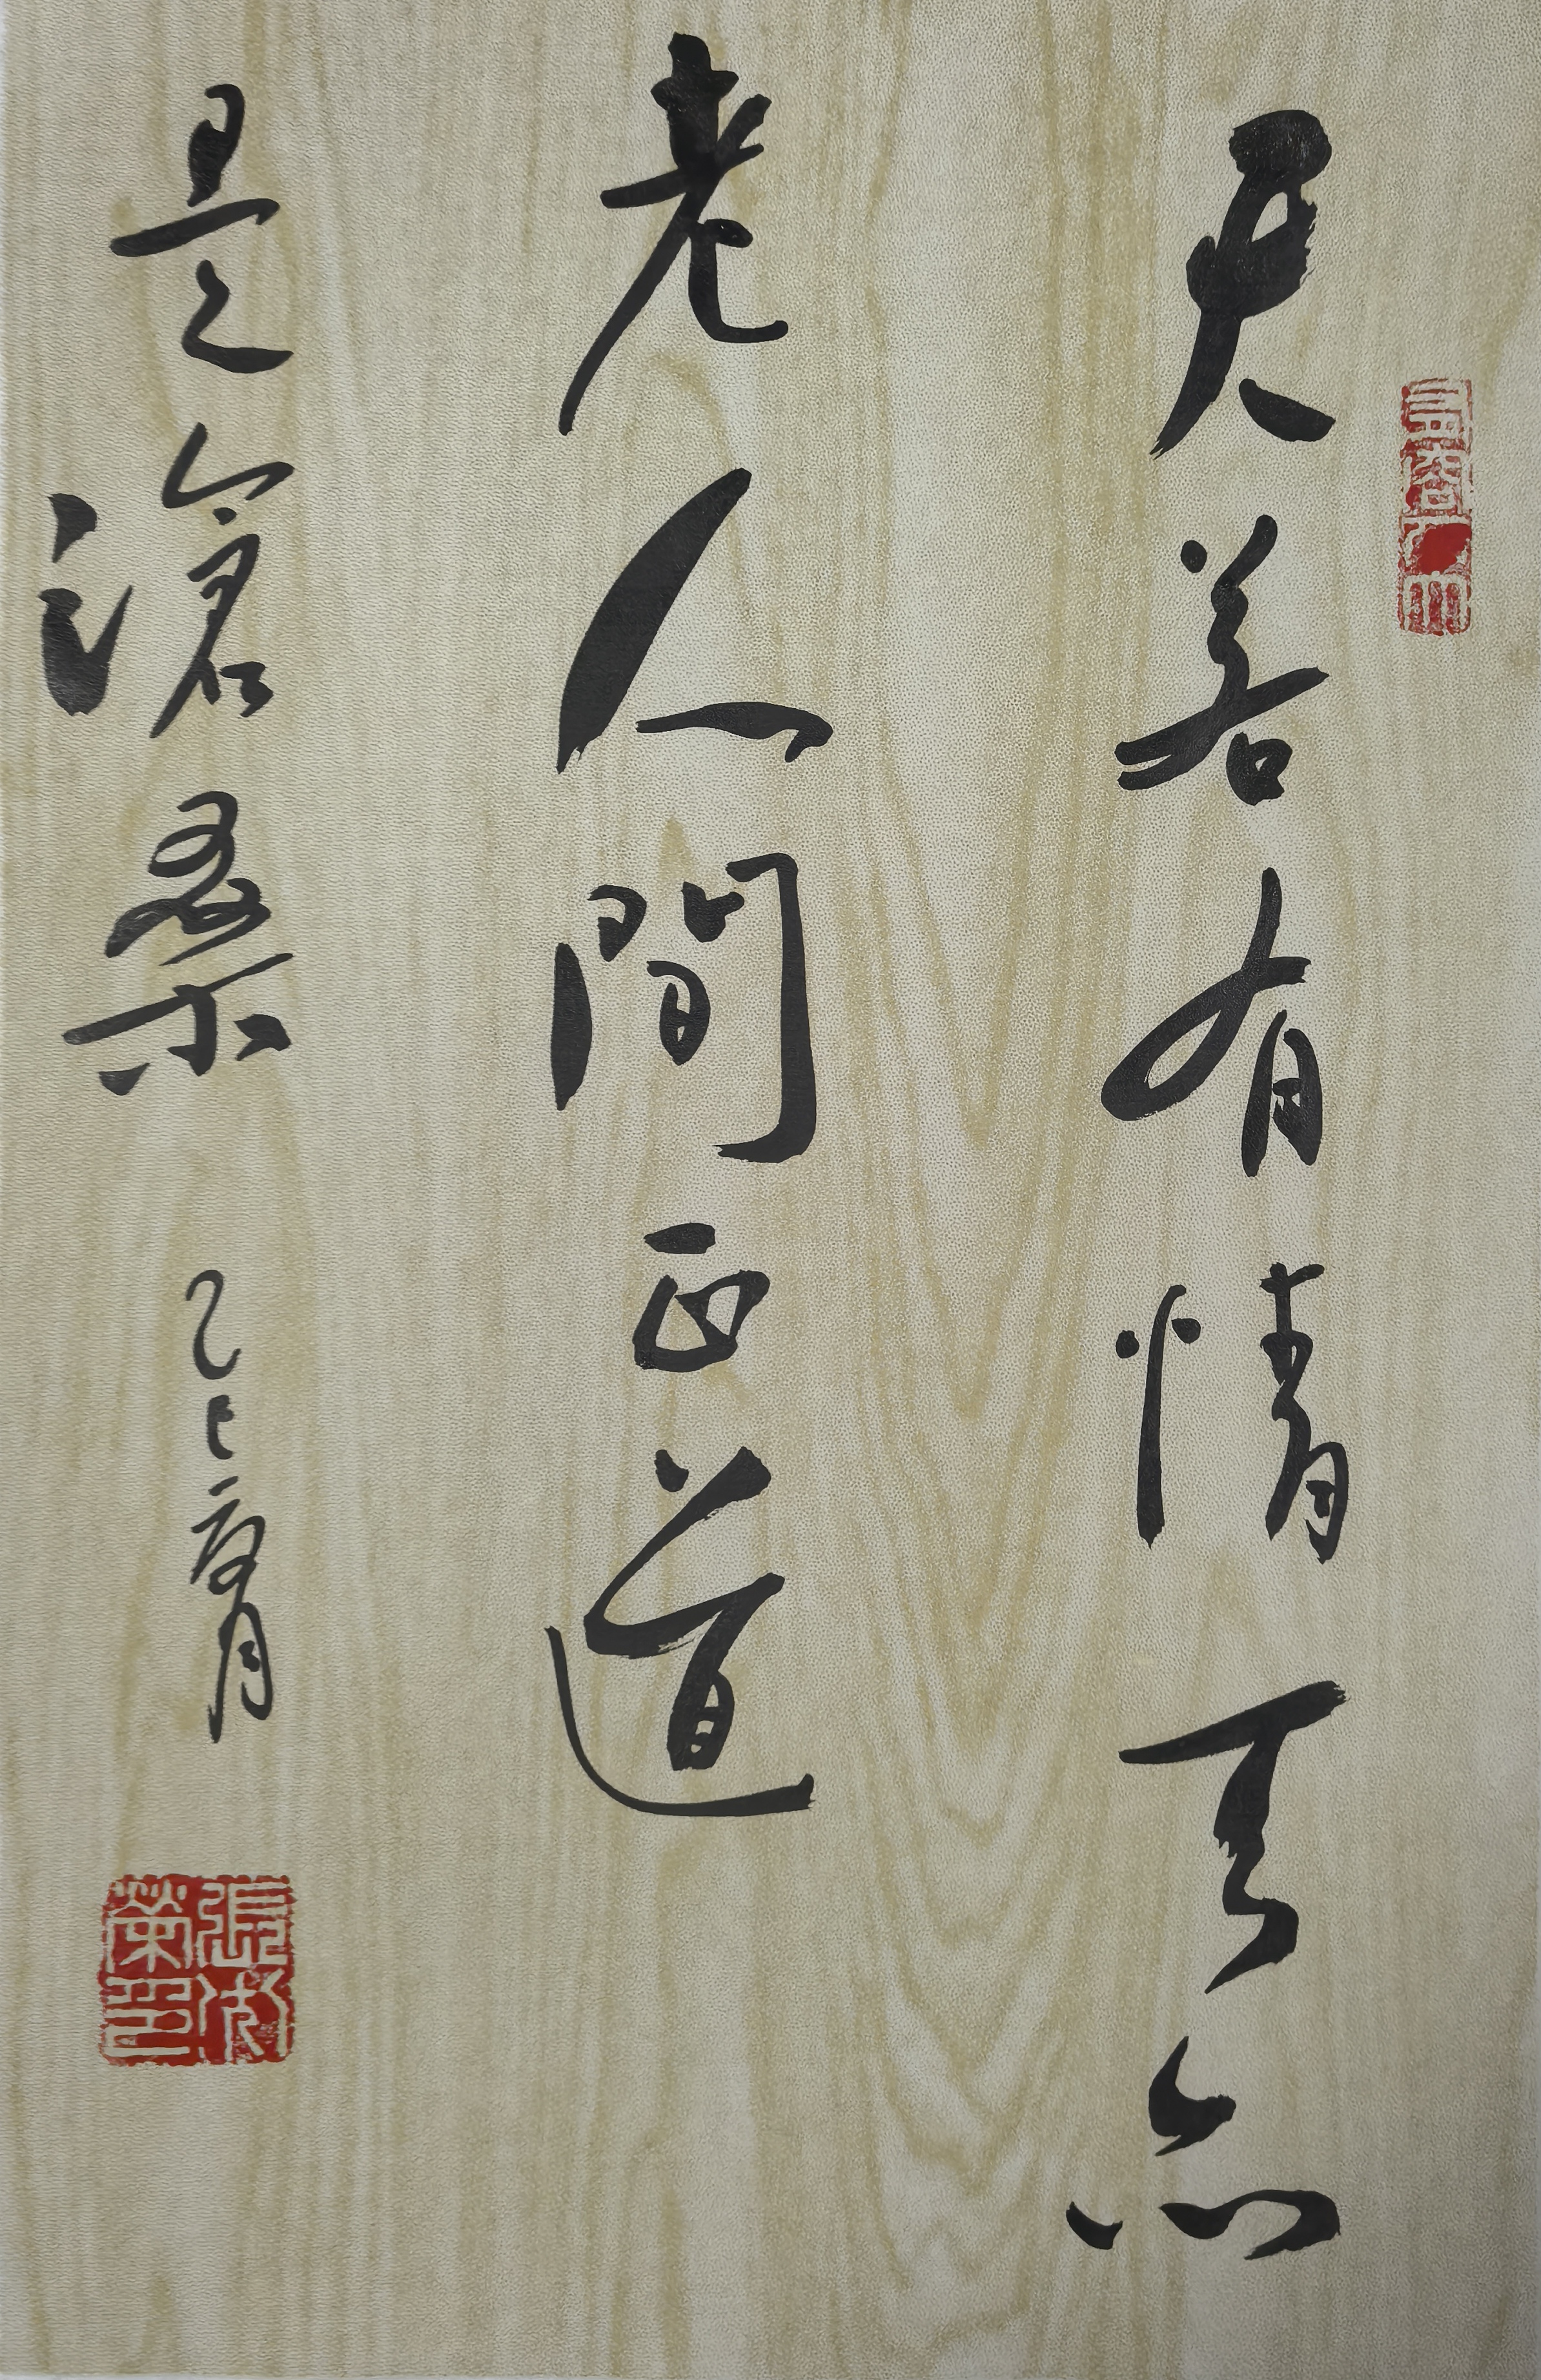 天若有情天亦
老人間正道
是滄桑 乙巳 月